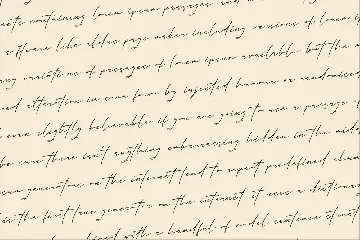 containing lorem ipsum passages and
software like aldus page maker including versions of lorem
many variations of passages of lorem ipsum available but the
alteration in some form by injected humour or randomised
even slightly believable if you are going to use a passage
be sure there isn't anything embarrassing hidden in the midd
generators on the internet tend to repeat predefined chun
is the first true generator on the internet it uses a dictionary
with a handful of model sentence